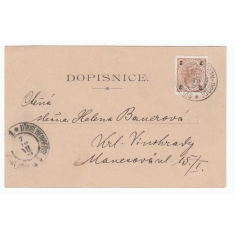 DOPISNICE.
Ctěná
slečna Helena Bauerová
Krl. Vinohrady
Manesová ul. 15/I.